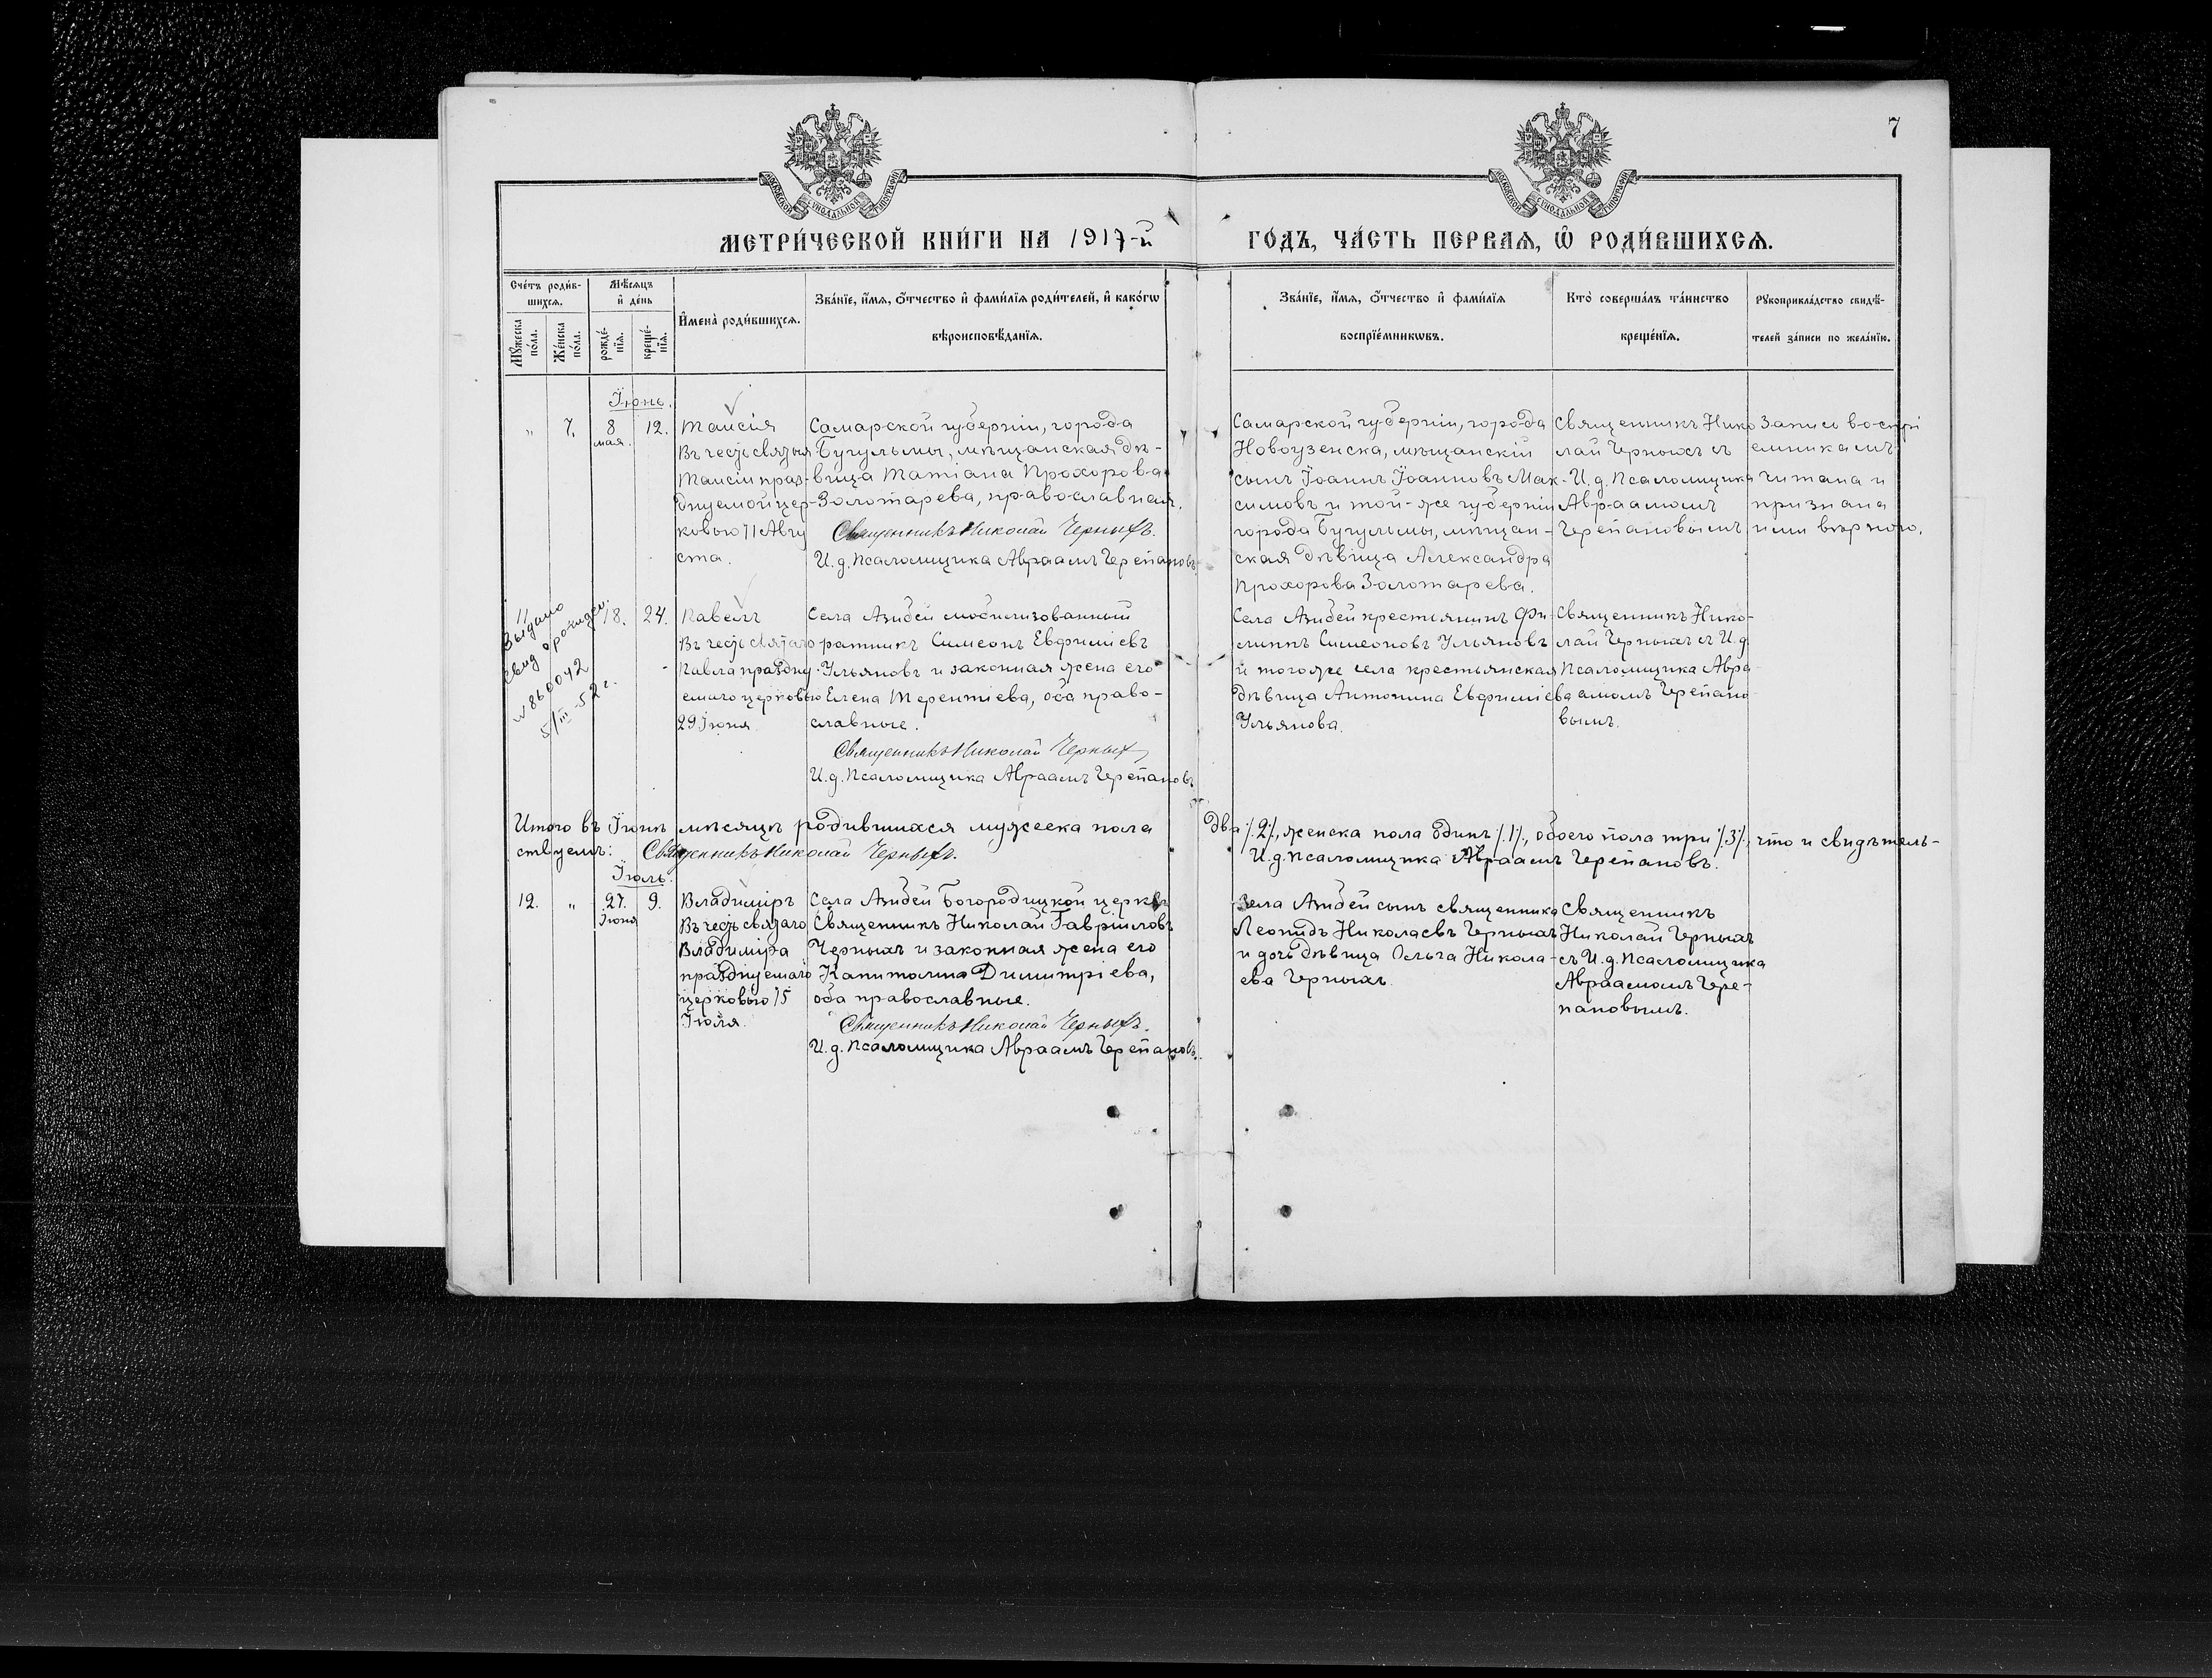 7
МОСКОВСКОЙ СѴНОДАЛЬНОЙ ТИПОГРАФІИ
МОСКОВСКОЙ СѴНОДАЛЬНОЙ ТИПОГРАФІИ
МЕТРИ́ЧЕСКОЙ КНИ́ГИ НА 1917-й
ГО́ДЪ, ЧА́СТЬ ПЕРВАѦ, Ѿ РОДИ́ВШИХСѦ.
Сче́тъ роди́в-
шихсѧ.
Мꙋ́жеска
по́ла.
Же́нска
по́ла.
Мѣ́сѧцъ
и҆ де́нь
рожде́-
нїѧ.
креще́-
нїѧ.
И҆мена̀ роди́вшихсѧ.
Зва́нїе, и҆́мѧ, ѻ҆́тчество и҆ фами́лїѧ роди́телей, и҆ како́гѡ
вѣроисповѣ́данїѧ.
Зва́нїе, и҆́мѧ, ѻ҆́тчество и҆ фами́лїѧ
воспрїе́мникѡвъ.
Кто̀ соверша́лъ та́инство
креще́нїѧ.
Рꙋкоприкла́дство свидѣ́-
телей за́писи по жела́нїю.
Іюнь.
" 7. 8 мая. 12.
Таисія
Въ честь святыя
Таисіи праз-
днуемой цер-
ковью 11 Авгу
ста.
Самарской губерніи, города
Бугульмы, мѣщанская дѣ-
вица Татіана Прохорова
Золотарева, православная.
Священникъ Николай Черныхъ.
И. д. Псаломщика Авраамъ Черепановъ
Самарской губерніи, города
Новоузенска, мѣщанскій
сынъ Іоаннъ Іоанновъ Мак-
симовъ и той-же губерніи
города Бугульмы, мѣщан-
ская дѣвица Александра
Прохорова Золотарева.
Священникъ Нико
лай Черныхъ съ
И. д. Псаломщика
Авраамомъ
Черепановымъ
Запись воспрі
емникамъ
читана и
признана
ими вѣрною.
11
Выдано
свид о рожден.
№ 860042
5/III-52 г.
18. 24.
Павелъ
Въ честь святаго
Павла праздну-
емаго церковью
29 Іюня
Села Азибей мобилизованный
ратникъ Симеонъ Евфиміевъ
Ульяновъ и законная жена его
Елена Терентіева, оба право-
славные.
Священникъ Николай Черныхъ
И. д. Псаломщика Авраамъ Черепановъ
Села Азибей крестьянинъ Фи-
липпъ Симеоновъ Ульяновъ
и тогоже села крестьянская
дѣвица Антонина Евфиміева
Ульянова.
Священникъ Нико-
лай Черныхъ съ И. д
Псаломщика Авра
амомъ Черепано
вымъ.
Итого въ Іюнѣ мѣсяцѣ родившихся мужеска пола два /.2/., женска пола одинъ /.1/., обоего пола три /.3/., что и свидѣтель-
ствуемъ: Священникъ Николай Черныхъ. И. д. Псаломщика Авраамъ Черепановъ.
Іюль.
12. " 27. Іюня 9.
Владиміръ
Въ честь святаго
Владиміра
празднуемаго
церковью 15
Іюля.
Села Азибей Богородицкой церкви
Священникъ Николай Гавріиловъ
Черныхъ и законная жена его
Капитолина Димитріева,
оба православные.
Священникъ Николай Черныхъ.
И. д. Псаломщика Авраамъ Черепановъ.
Села Азибей сынъ священника
Леонидъ Николаевъ Черныхъ
и дочь дѣвица Ольга Никола-
ева Черныхъ.
Священникъ
Николай Черныхъ
съ И. д. Псаломщика
Авраамомъ Чере-
пановымъ.